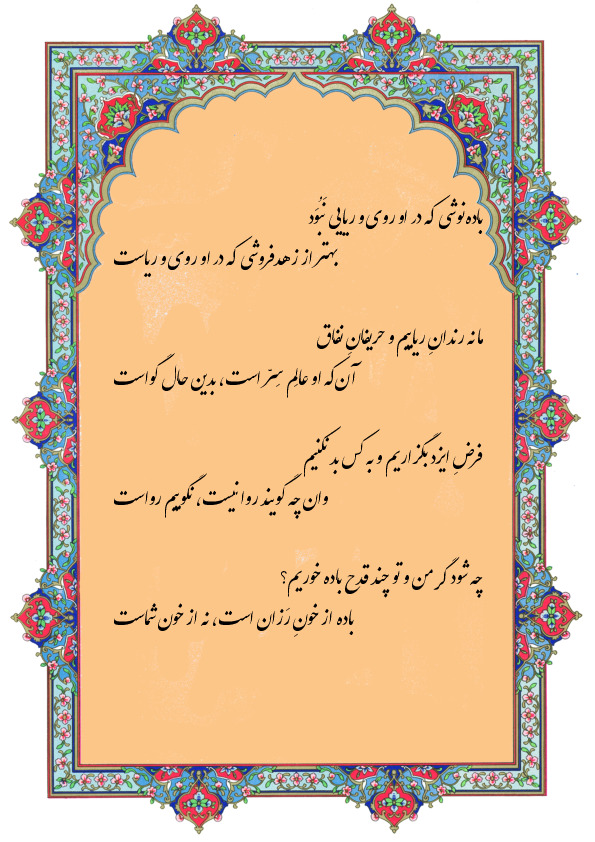 باده‌نوشی که در او روی و ریایی نَبُوَد
بهتر از زهدفروشی که در او روی و ریاست
ما نه رندانِ ریاییم و حریفانِ نفاق
آن که او عالِم سِرّ است، بدین حال گواست
فرضِ ایزد بگزاریم و به کس بد نکنیم
وان چه گویند روا نیست، نگوییم رواست
چه شود گر من و تو چند قدح باده خوریم؟
باده از خونِ رَزان است، نه از خون شماست